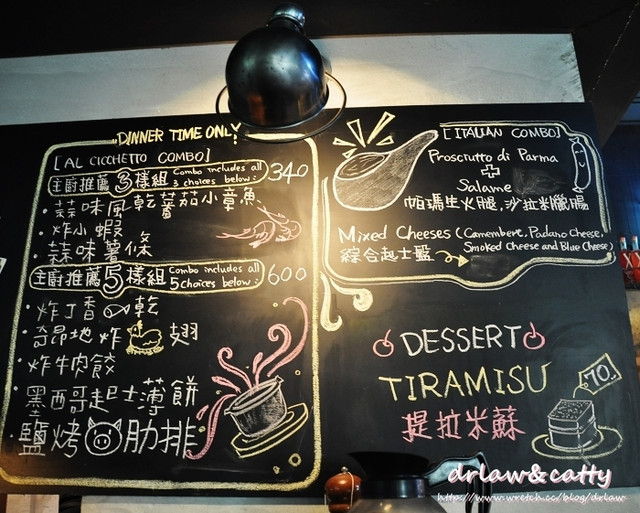 DINNER TIME ONLY!
[AL CICCHETTO COMBO]
主廚推薦 3樣組 Combo includes all 3 choices below: 340
·蒜味風乾蕃茄小章魚
·炸小蝦
·蒜味薯條
主廚推薦 5樣組 Combo includes all 5 choices below: 600
·炸丁香乾
·奇昂地炸翅
·炸牛肉餃
·墨西哥起士薄餅
·鹽烤肋排
[ITALIAN COMBO]
Prosciutto di Parma
+
Salame
帕瑪生火腿,沙拉米臘腸
Mixed Cheeses (Camembert, Padano Cheese,
Smoked Cheese and Blue Cheese)
綜合起士盤
DESSERT
TIRAMISU
70..
提拉米蘇
drlaw&catty
http://www.wretch.cc/blog/drlaw